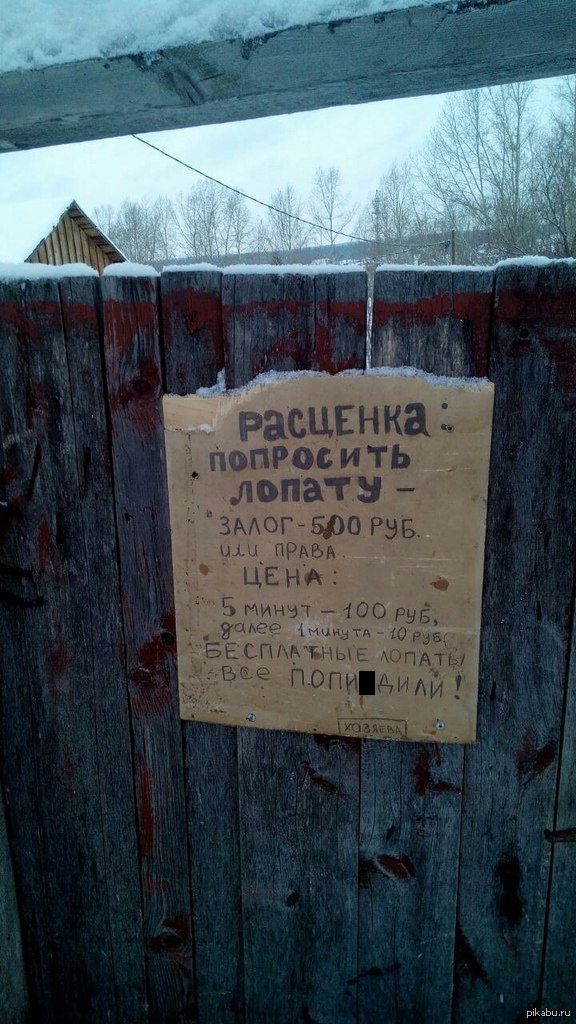 РАСЦЕНКА:
ПОПРОСИТЬ
ЛОПАТУ –
ЗАЛОГ - 500 РУБ.
ИЛИ ПРАВА.
ЦЕНА:
5 МИНУТ – 100 РУБ,
далее 1 МИНУТА - 10 РУБ.
БЕСПЛАТНЫЕ ЛОПАТЫ
ВСЕ ПОПИ ДИЛИ!
ХОЗЯЕВА
pikabu.ru